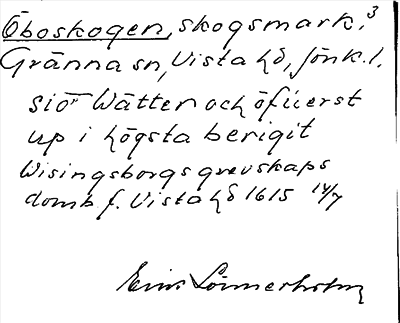 Öboskogen, skogsmark. 3
Gränna sn, Vista hd, Jönk. l.
siör Wätter och öfúerst
up i högsta berigit
Wisingsborgs grevskaps
domb f. Vista hd 1615 14/7
Einer Lönnerholm